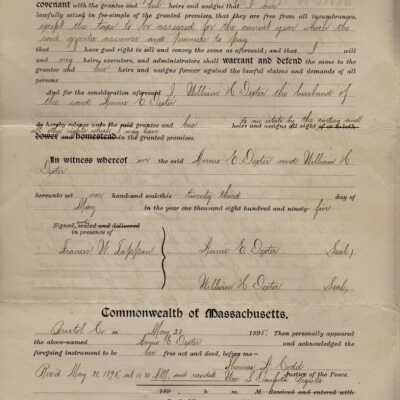 covenant with the grantee and her heirs and assigns that I am
lawfully seized in fee-simple of the granted premises, that they are free from all incumbrances,
except the taxes to be assessed for the current year which the
said grantee assumes and promises to pay
that I have good right to sell and convey the same as aforesaid; and that I will
and my heirs, executors, and administrators shall warrant and defend the same to the
grantee and her heirs and assigns forever against the lawful claims and demands of all
persons
And for the consideration aforesaid I, William C Dexter the husband of
the said Annie E Dexter
do hereby release unto the said grantee and her heirs and assigns all right of or to both
to my estate by the curtesy and
all other rights which I may have
dower and homestead in the granted premises.
In witness whereof we the said Annie E Dexter and William C
Dexter
hereunto set our hand and seal this twenty third day of
May in the year one thousand eight hundred and ninety-five
Signed, sealed and delivered
in presence of
Annie E Dexter Seal
William C Dexter Seal
Commonwealth of Massachusetts.
Bristol ss. May 23 1895. Then personally appeared
the above-named Annie E Dexter and acknowledged the
foregoing instrument to be her free act and deed, before me—
Justice of the Peace
Recd May 1895, at and recorded Register
189 h. m. M Received and entered with